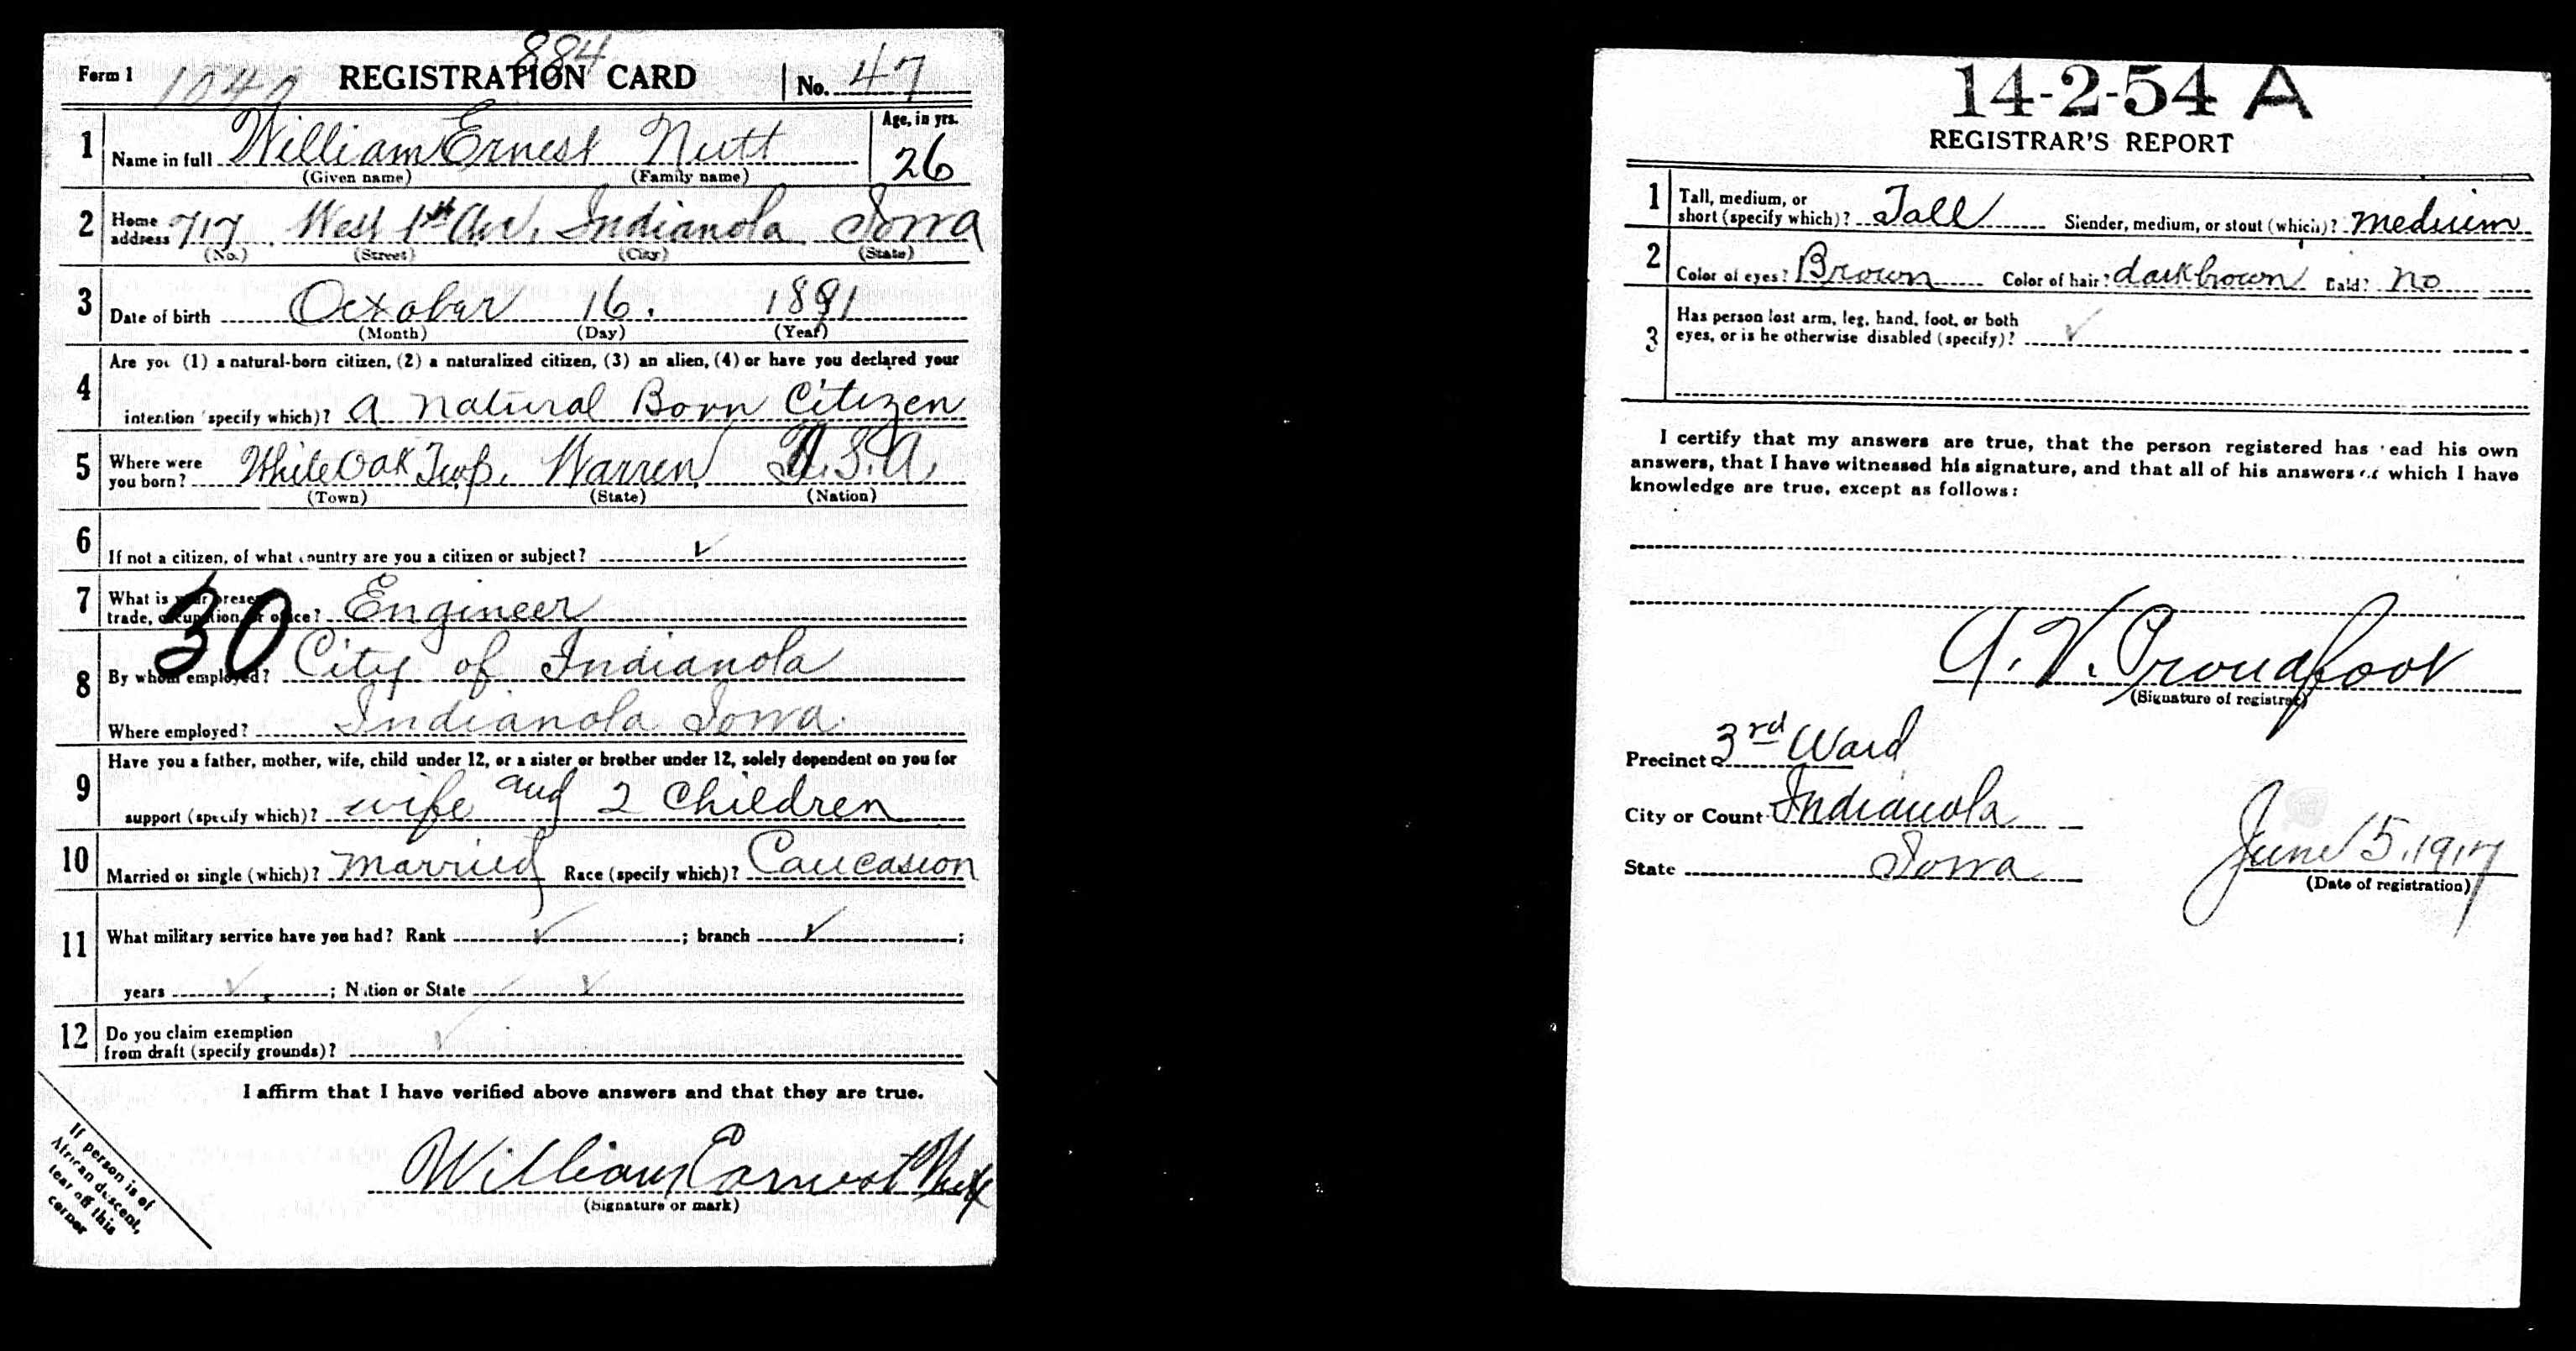 884
Form 1 1040 REGISTRATION CARD No. 47
1 Name in full William Ernest Nutt Age, in yrs. 26
(Given name) (Family name)
2 Home address 717 West 1st Av, Indianola Iowa
(No.) (Street) (City) (State)
3 Date of birth October 16. 1891
(Month) (Day) (Year)
4 Are you (1) a natural-born citizen, (2) a naturalized citizen, (3) an alien, (4) or have you declared your
intention (specify which)? a natural Born Citizen
5 Where were you born? White Oak Twp. Warren U.S.A.
(Town) (State) (Nation)
6 If not a citizen, of what country are you a citizen or subject? ✓
7 What is your present
trade, occupation, or office? Engineer
30
8 By whom employed? City of Indianola
Where employed? Indianola Iowa.
9 Have you a father, mother, wife, child under 12, or a sister or brother under 12, solely dependent on you for
support (specify which)? wife and 2 Children
10 Married or single (which)? married Race (specify which)? Caucasion
11 What military service have you had? Rank ✓ ; branch ✓ ;
years ✓ ; Nation or State ✓
12 Do you claim exemption
from draft (specify grounds)? ✓
I affirm that I have verified above answers and that they are true.
William Earnest Nutt
(Signature or mark)
If person is of
African descent,
tear off this
corner
14-2-54 A
REGISTRAR'S REPORT
1 Tall, medium, or
short (specify which)? Tall Slender, medium, or stout (which)? medium
2 Color of eyes? Brown Color of hair? dark brown Bald? no
3 Has person lost arm, leg, hand, foot, or both
eyes, or is he otherwise disabled (specify)? ✓
I certify that my answers are true, that the person registered has read his own
answers, that I have witnessed his signature, and that all of his answers of which I have
knowledge are true, except as follows:
A. V. Proudfoot
(Signature of registrar)
Precinct 3rd Ward
City or County Indianola
State Iowa
June 5, 1917
(Date of registration)